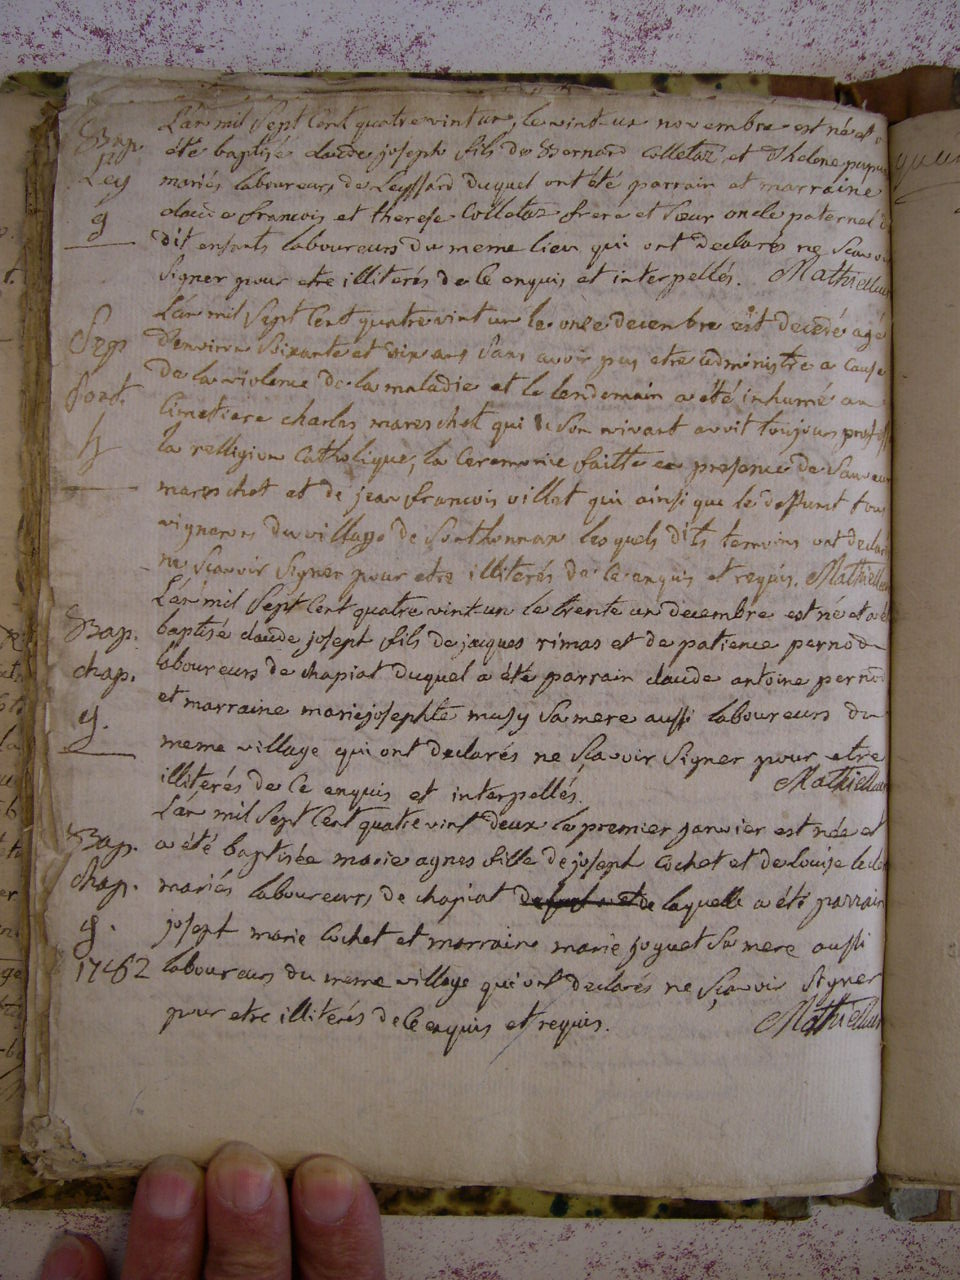 Bap.
Ley
g
L'an mil sept Cent quatre vint un, le vint un novembre est né et a
été baptisé claude joseph fils de Bernard Colletaz et Thelene
mariés laboureurs de Leyssard duquel ont été parrain et marraine
claude francois et therese Colletaz frere et soeur oncle paternel d
dit enfants laboureurs du meme lieu qui ont declarés ne scavoir
signer pour etre illiterés de ce enquis et interpellés. Mathieu
Sep
Sont.
h
L'an mil sept Cent quatre vint un le onze decembre est decedé agé
d'environ soixante et dix ans sans avoir peu etre administre a cause
de la violence de la maladie et le lendemain a été inhumé au
Cimetiere charles mareschot qui de son vivant avoit toujours
la relligion Catholique, la Ceremonie faitte en presence de
mareschot et de jean francois villet qui ainsi que le deffunt tous
vignerons du village de Sonthonnax les quels dits temoins ont declaré
ne scavoir signer pour etre illiterés de ce enquis et requis. Mathieu
Bap.
chap.
g.
L'an mil sept Cent quatre vint un le trente un decembre est né et a été
baptisé claude josept fils de jacques rimas et de patience pernod
laboureurs de chapiat duquel a été parrain claude antoine pernod
et marraine marie josephte musy sa mere aussi laboureurs du
meme village qui ont declarés ne scavoir signer pour etre
illiterés de ce enquis et interpellés. Mathieu
Bap.
chap.
g.
1782
L'an mil sept Cent quatre vint deux le premier janvier est née et
a été baptisée marie agnes fille de joseph Cochet et de louise
mariés laboureurs de chapiat de laquelle a été parrain
josept marie Cochet et marraine marie joguet sa mere aussi
laboureurs du meme village qui ont declarés ne scavoir signer
pour etre illiterés de ce enquis et requis. Mathieu